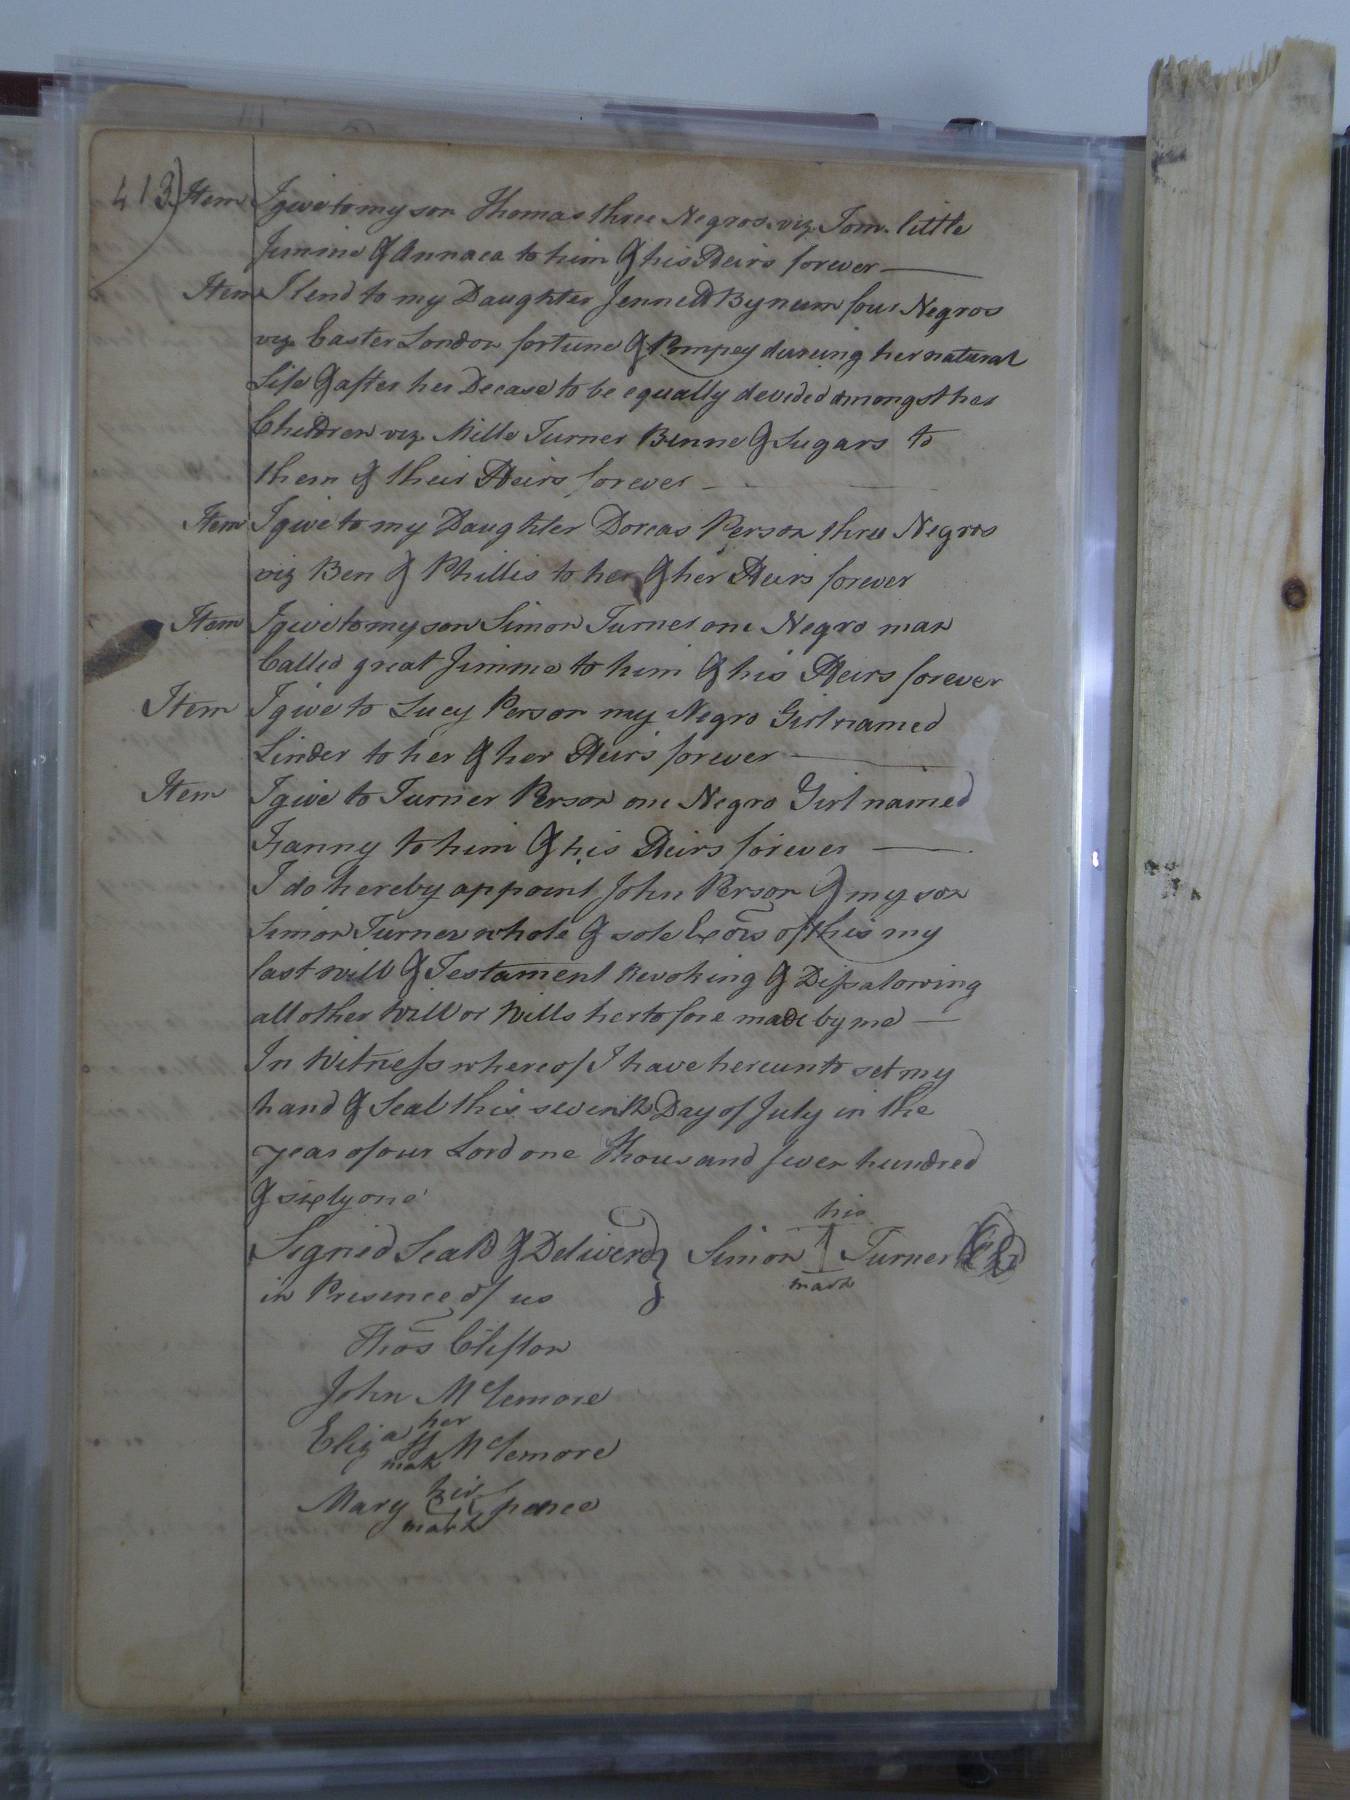 413) Item I give to my son Thomas three Negros viz Tom little
Jimme & Annaca to him & his Heirs forever
Item I lend to my Daughter Jennett Bynum four Negros
viz Caster London fortune & Pompey dureing her natural
Life & after her Decease to be equally devided amongst her
Children viz Mille Turner Benne & Sugars to
them & their Heirs forever
Item I give to my Daughter Dorcas Person three Negros
viz Ben & Phillis to her & her Heirs forever
Item I give to my son Simon Turner one Negro man
Called great Jimme to him & his Heirs forever
Item I give to Lucy Person my Negro Girl named
Linder to her & her Heirs forever
Item I give to Turner Person one Negro Girl named
Fanny to him & his Heirs forever
I do hereby appoint John Person & my son
Simon Turner whole & sole Exors of this my
last will & Testament Revoking & Dissalowing
all other Will or Wills hertofore made by me
In Witness whereof I have hereunto set my
hand & Seal this seventh Day of July in the
year of our Lord one Thousand seven hundred
& sixty one
his
Signed Seald & Deliverd } Simon Turner
mark
in Presence of us
Thos Clifton
John Mclemore
her
Eliza Mclemore
mark
her
Mary Spence
mark